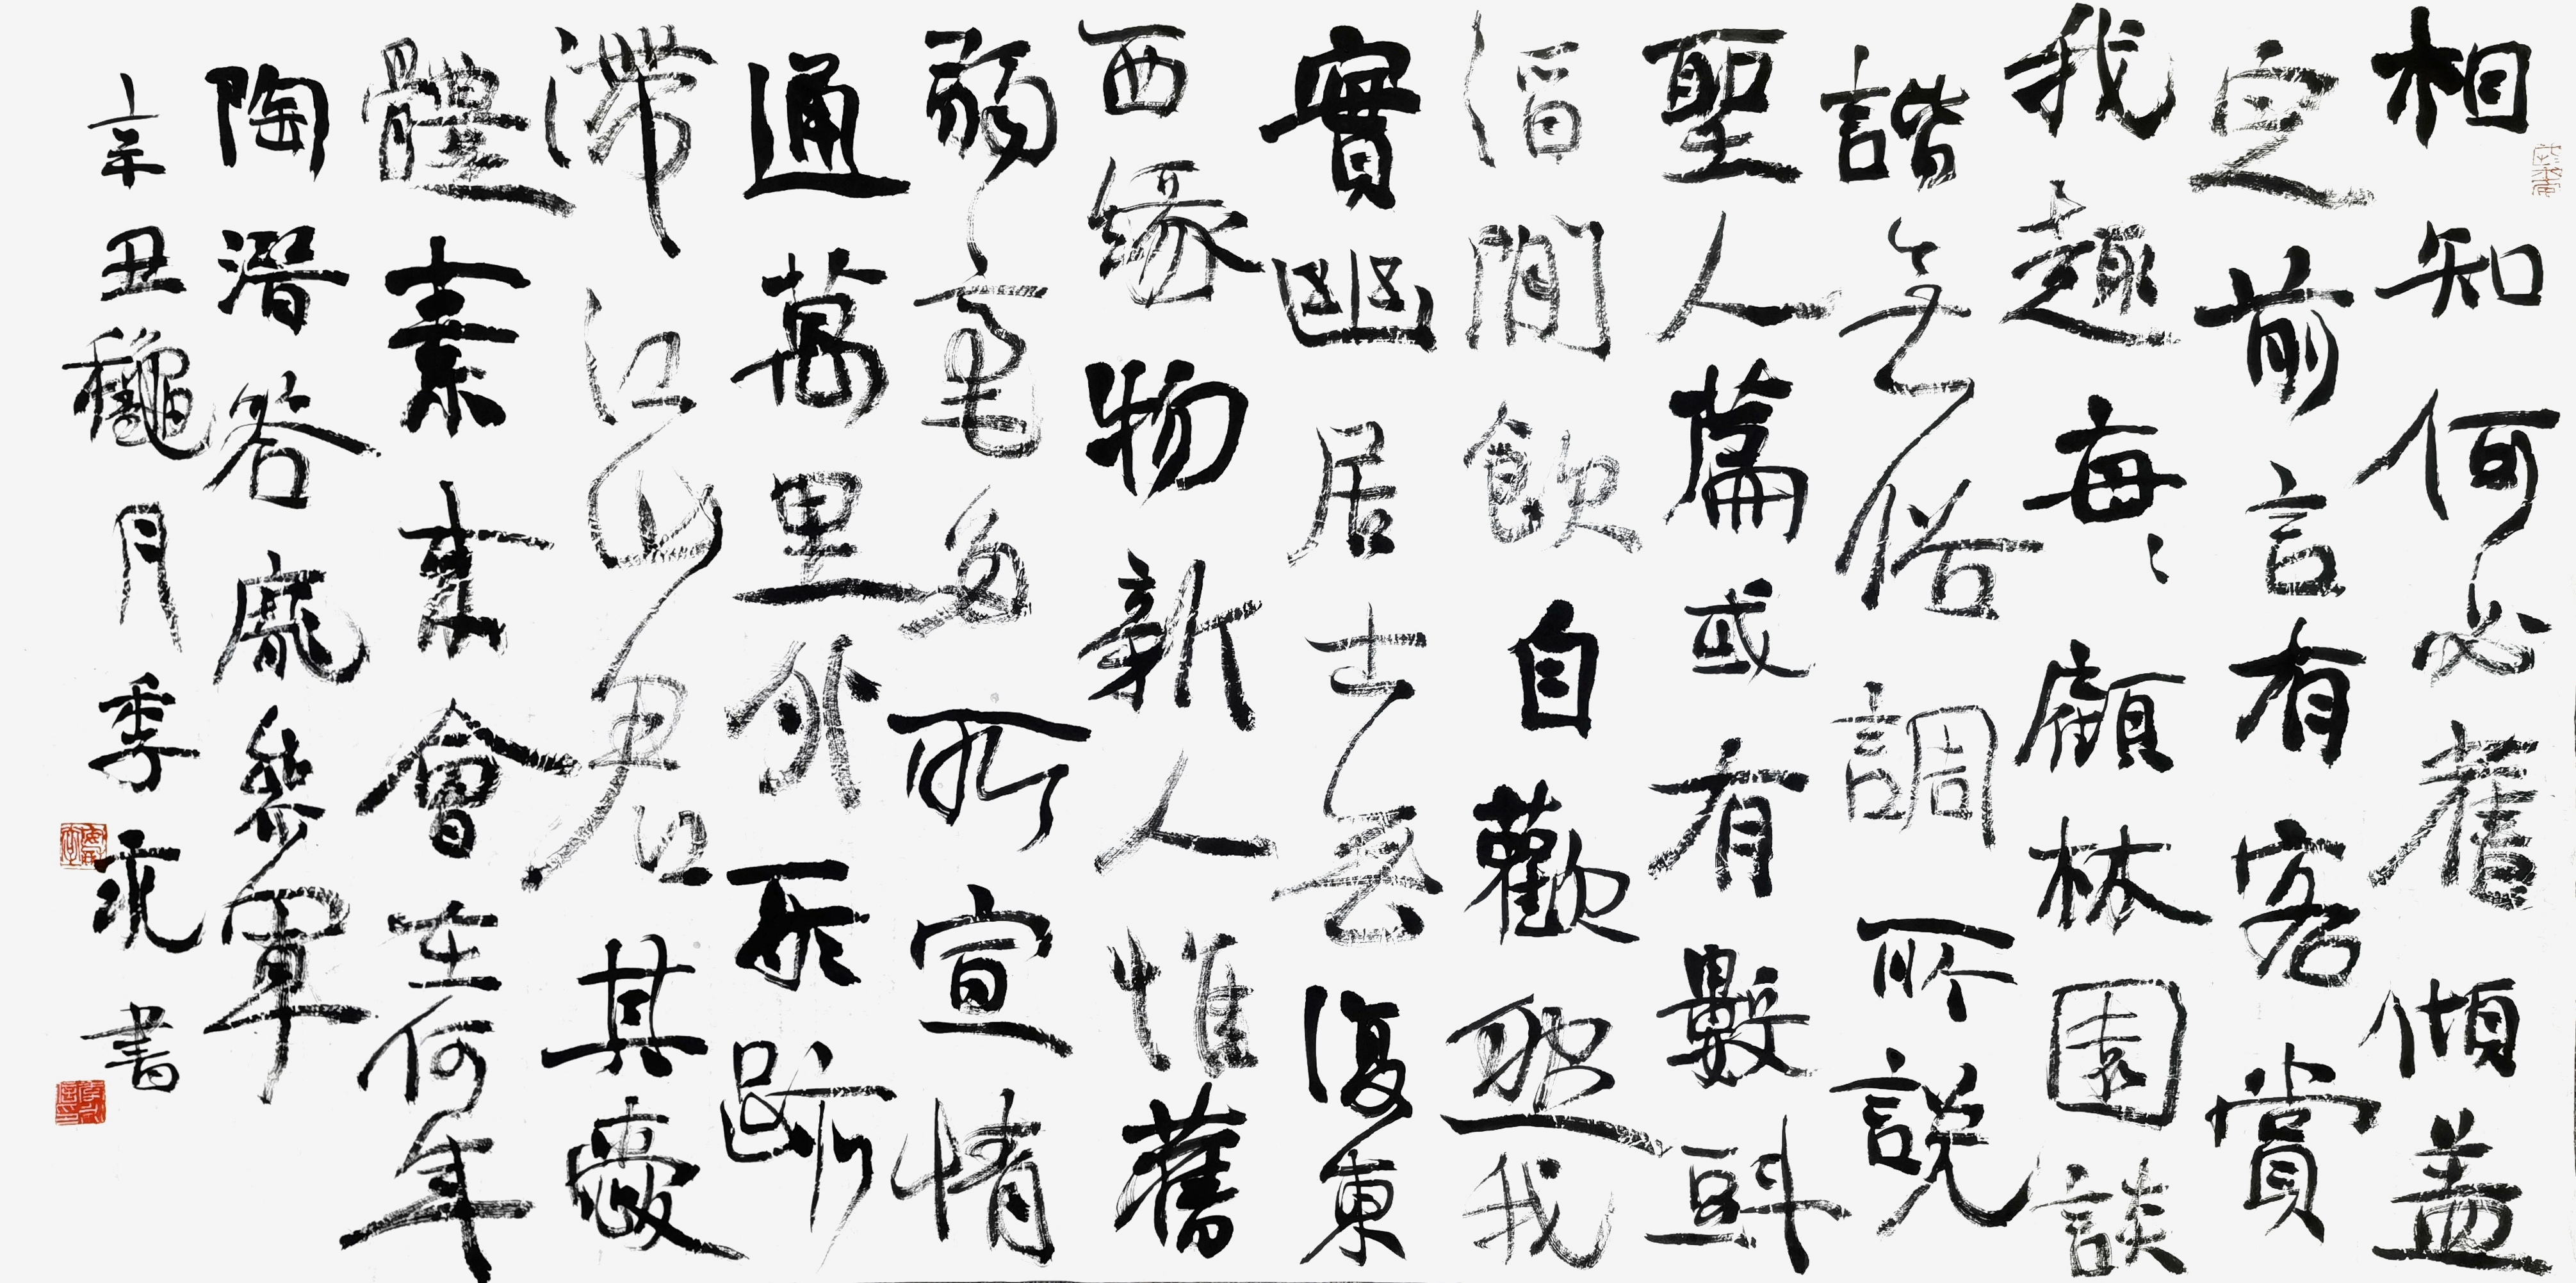 相知何必舊傾蓋
定前言有客賞
我趣每〻顧林園談
諧无俗調所説
聖人篇或有數㪷
酒閒飲自歡然我
實幽居士無復東
西緣物新人惟舊
弱毫多所宣情
通萬里外形跡
滯江山君其愛
體素来會在何年
陶潛答龐參軍
辛丑龝月季書